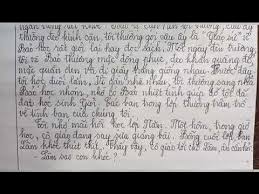 thường đeo kính cận, tôi thường gọi cậu ấy là "Giáo sư" vì
Bài lúc rất giỏi lại hay đọc sách. Một ngày đến trường,
tôi và Bài thường mặc đồng phục, đeo khăn quàng đỏ,
mặc quần đen và đi giày trắng giống nhau. Trước đây,
tôi học dưới, làm bài chưa tốt, tôi thường sang nhà
Bài học nhóm, nhờ có Bài nhiệt tình giúp đỡ tôi đã
đạt học sinh Giỏi. Các bạn trong lớp thường trầm trồ
về tình bạn của chúng tôi.
Tôi nhớ mãi hồi học lớp Năm. Một hôm, trong giờ
học, cô giáo đang say sưa giảng bài. Bỗng cuối lớp, bạn
Lâm khóc thút thít. Thấy vậy, cô giáo tới chỗ Lâm, ân cần hỏi:
- Làm sao con khóc?